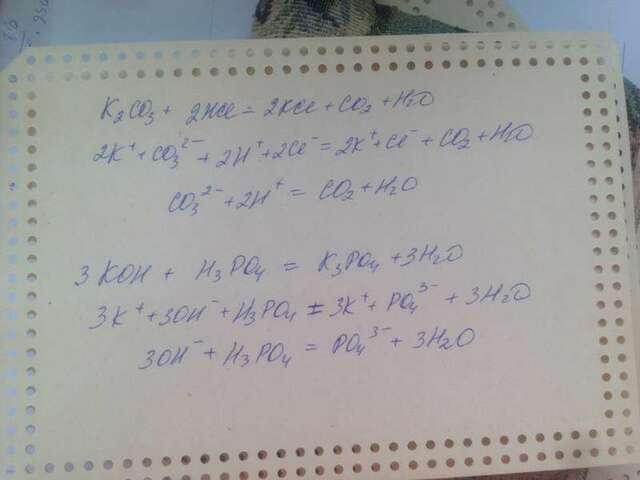 K₂CO₃ + 2HCl = 2KCl + CO₂ + H₂O
2K⁺ + CO₃²⁻ + 2H⁺ + 2Cl⁻ = 2K⁺ + Cl⁻ + CO₂ + H₂O
CO₃²⁻ + 2H⁺ = CO₂ + H₂O
3KOH + H₃PO₄ = K₃PO₄ + 3H₂O
3K⁺ + 3OH⁻ + H₃PO₄ = 3K⁺ + PO₄³⁻ + 3H₂O
3OH⁻ + H₃PO₄ = PO₄³⁻ + 3H₂O